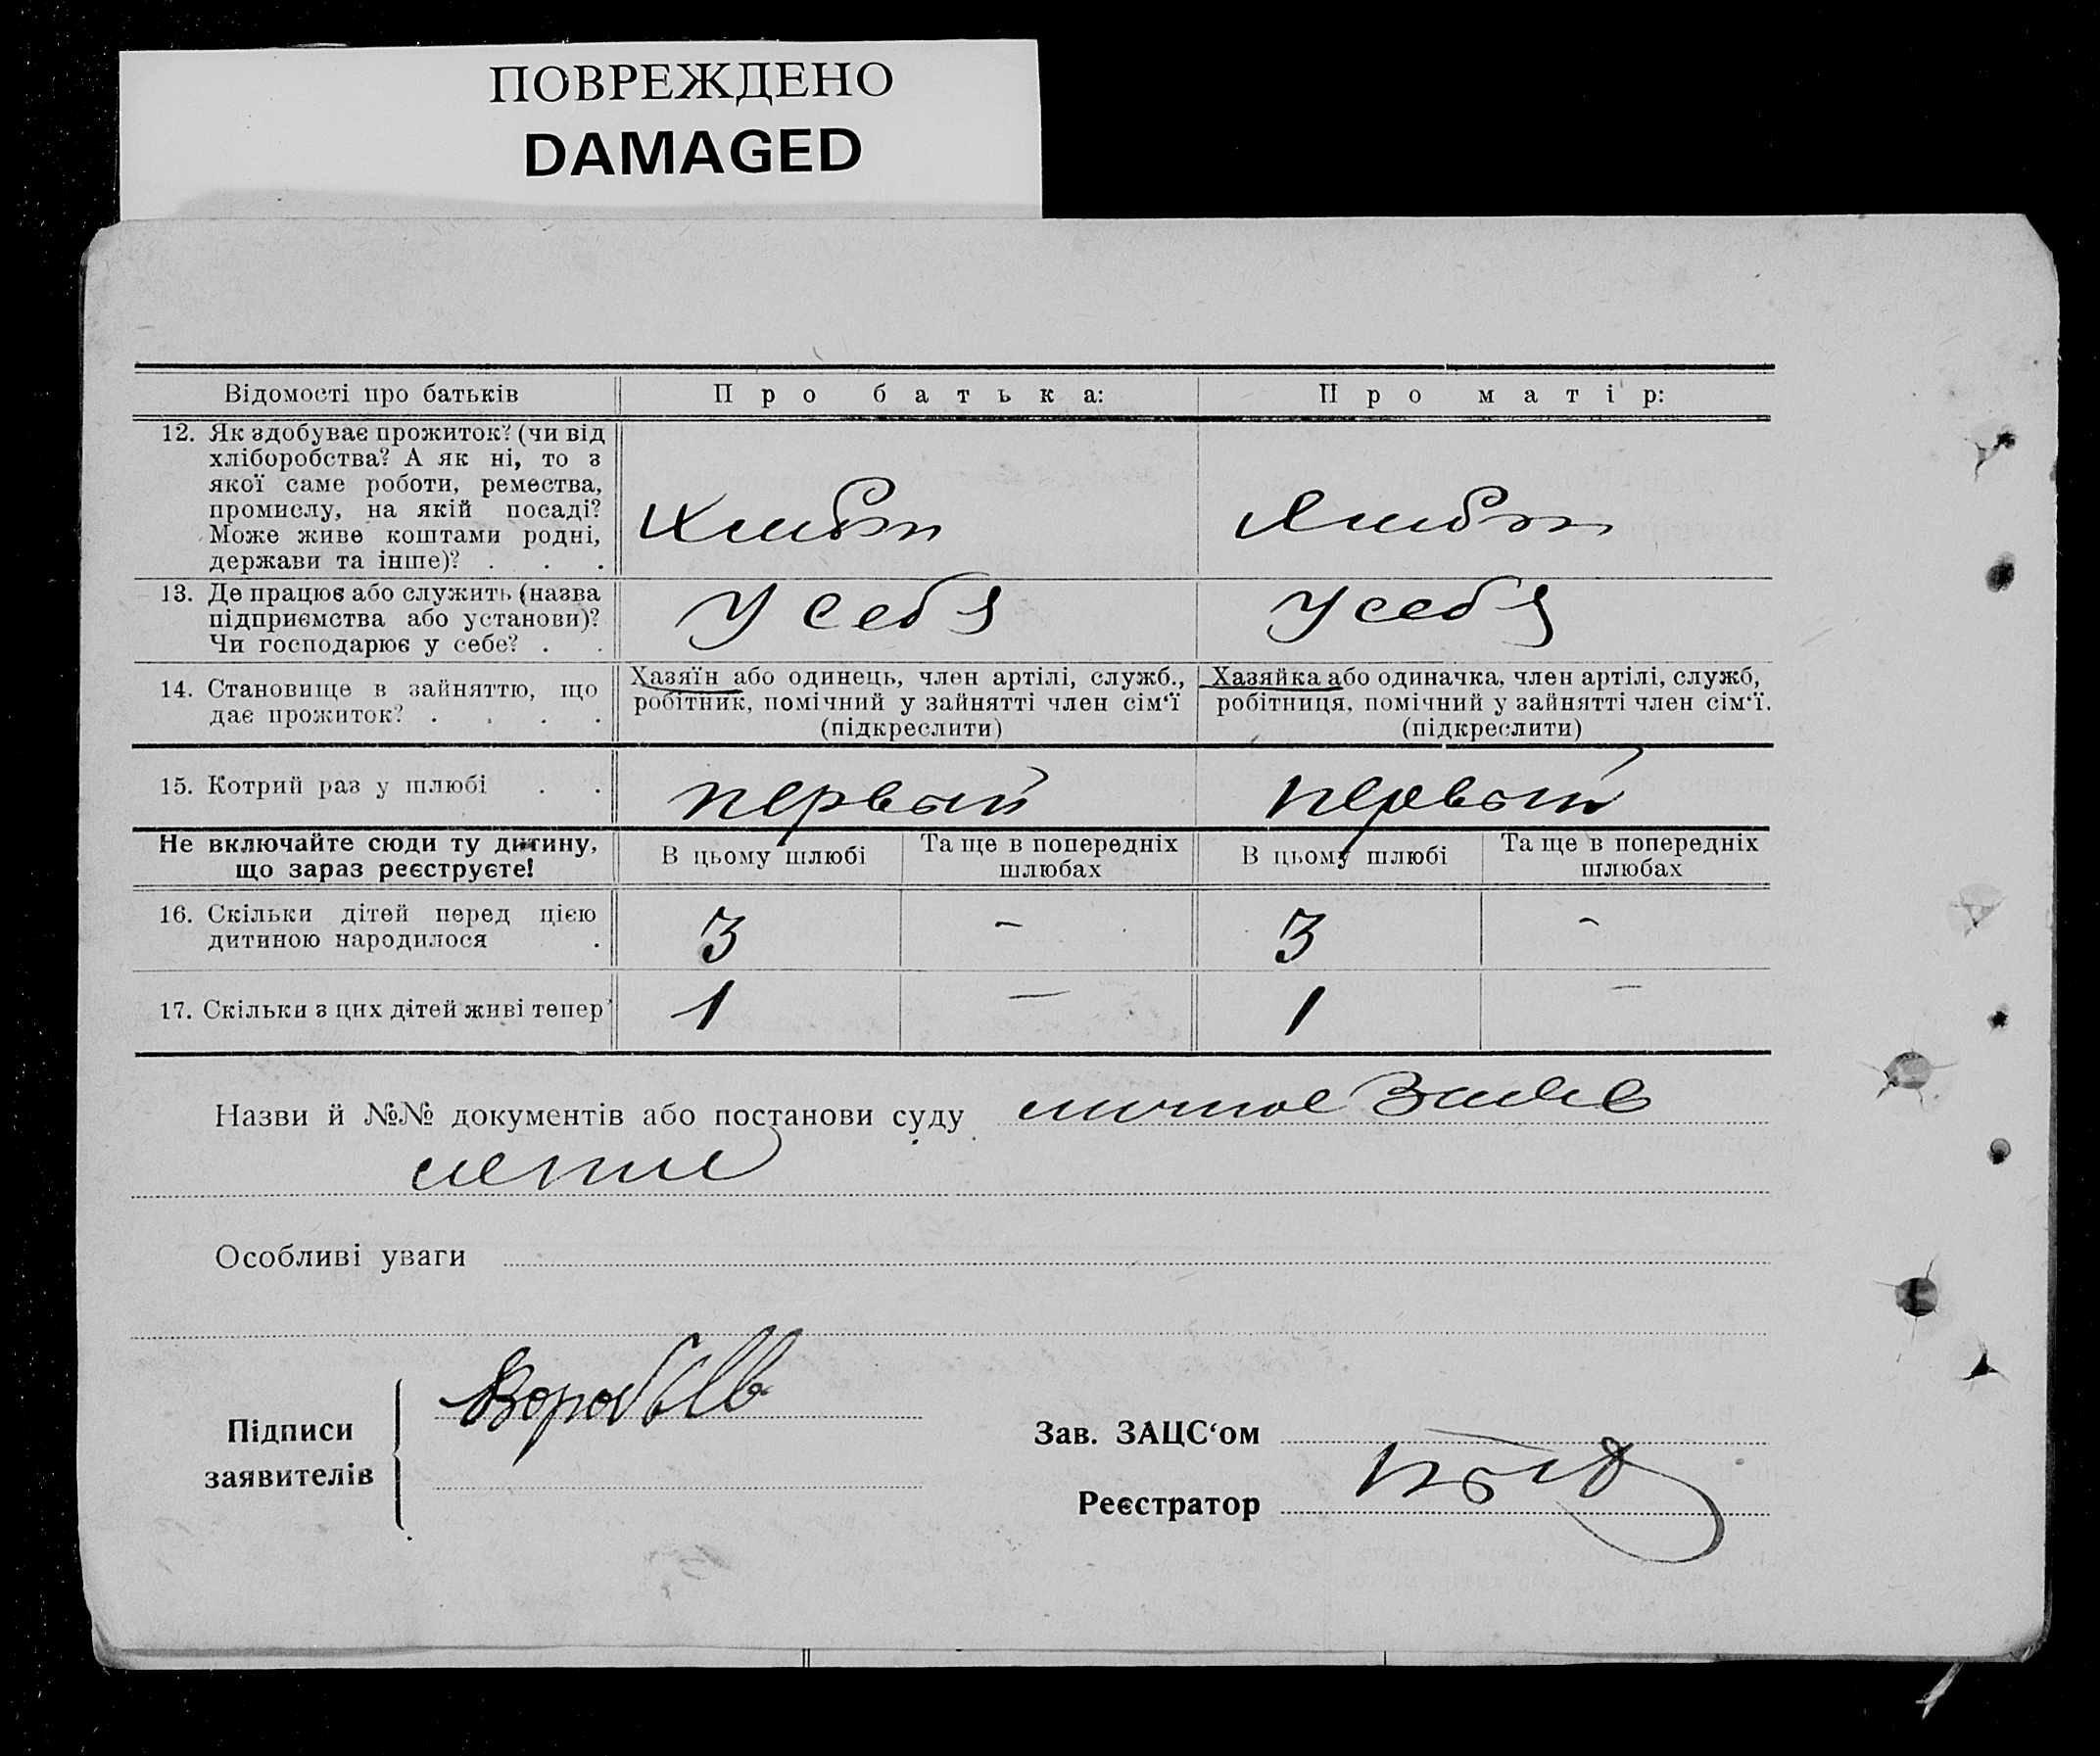 ПОВРЕЖДЕНО
DAMAGED
Відомості про батьків
Про батька:
Про матір:
12. Як здобуває прожиток? (чи від
хліборобства? А як ні, то з
якої саме роботи, ремества,
промислу, на якій посаді?
Може живе коштами родні,
держави та інше)? . . .
13. Де працює або служить (назва
підприємства або установи)?
Чи господарює у себе? . .
У себя
У себя
14. Становище в зайняттю, що
дає прожиток? . . . .
Хазяїн або одинець, член артілі, служб.,
робітник, помічний у зайнятті член сім‘ї
(підкреслити)
Хазяйка або одиначка, член артілі, служб,
робітниця, помічний у зайнятті член сім‘ї.
(підкреслити)
15. Котрий раз у шлюбі . .
первый
первый
Не включайте сюди ту дитину,
що зараз реєструєте!
В цьому шлюбі
Та ще в попередніх
шлюбах
В цьому шлюбі
Та ще в попередніх
шлюбах
16. Скільки дітей перед цією
дитиною народилося .
3 – 3 –
17. Скільки з цих дітей живі тепер
1 — 1 –
Назви й №№ документів або постанови суду личное Заяв
ление
Особливі уваги
Підписи
заявителів
Зав. ЗАЦС‘ом
Реєстратор